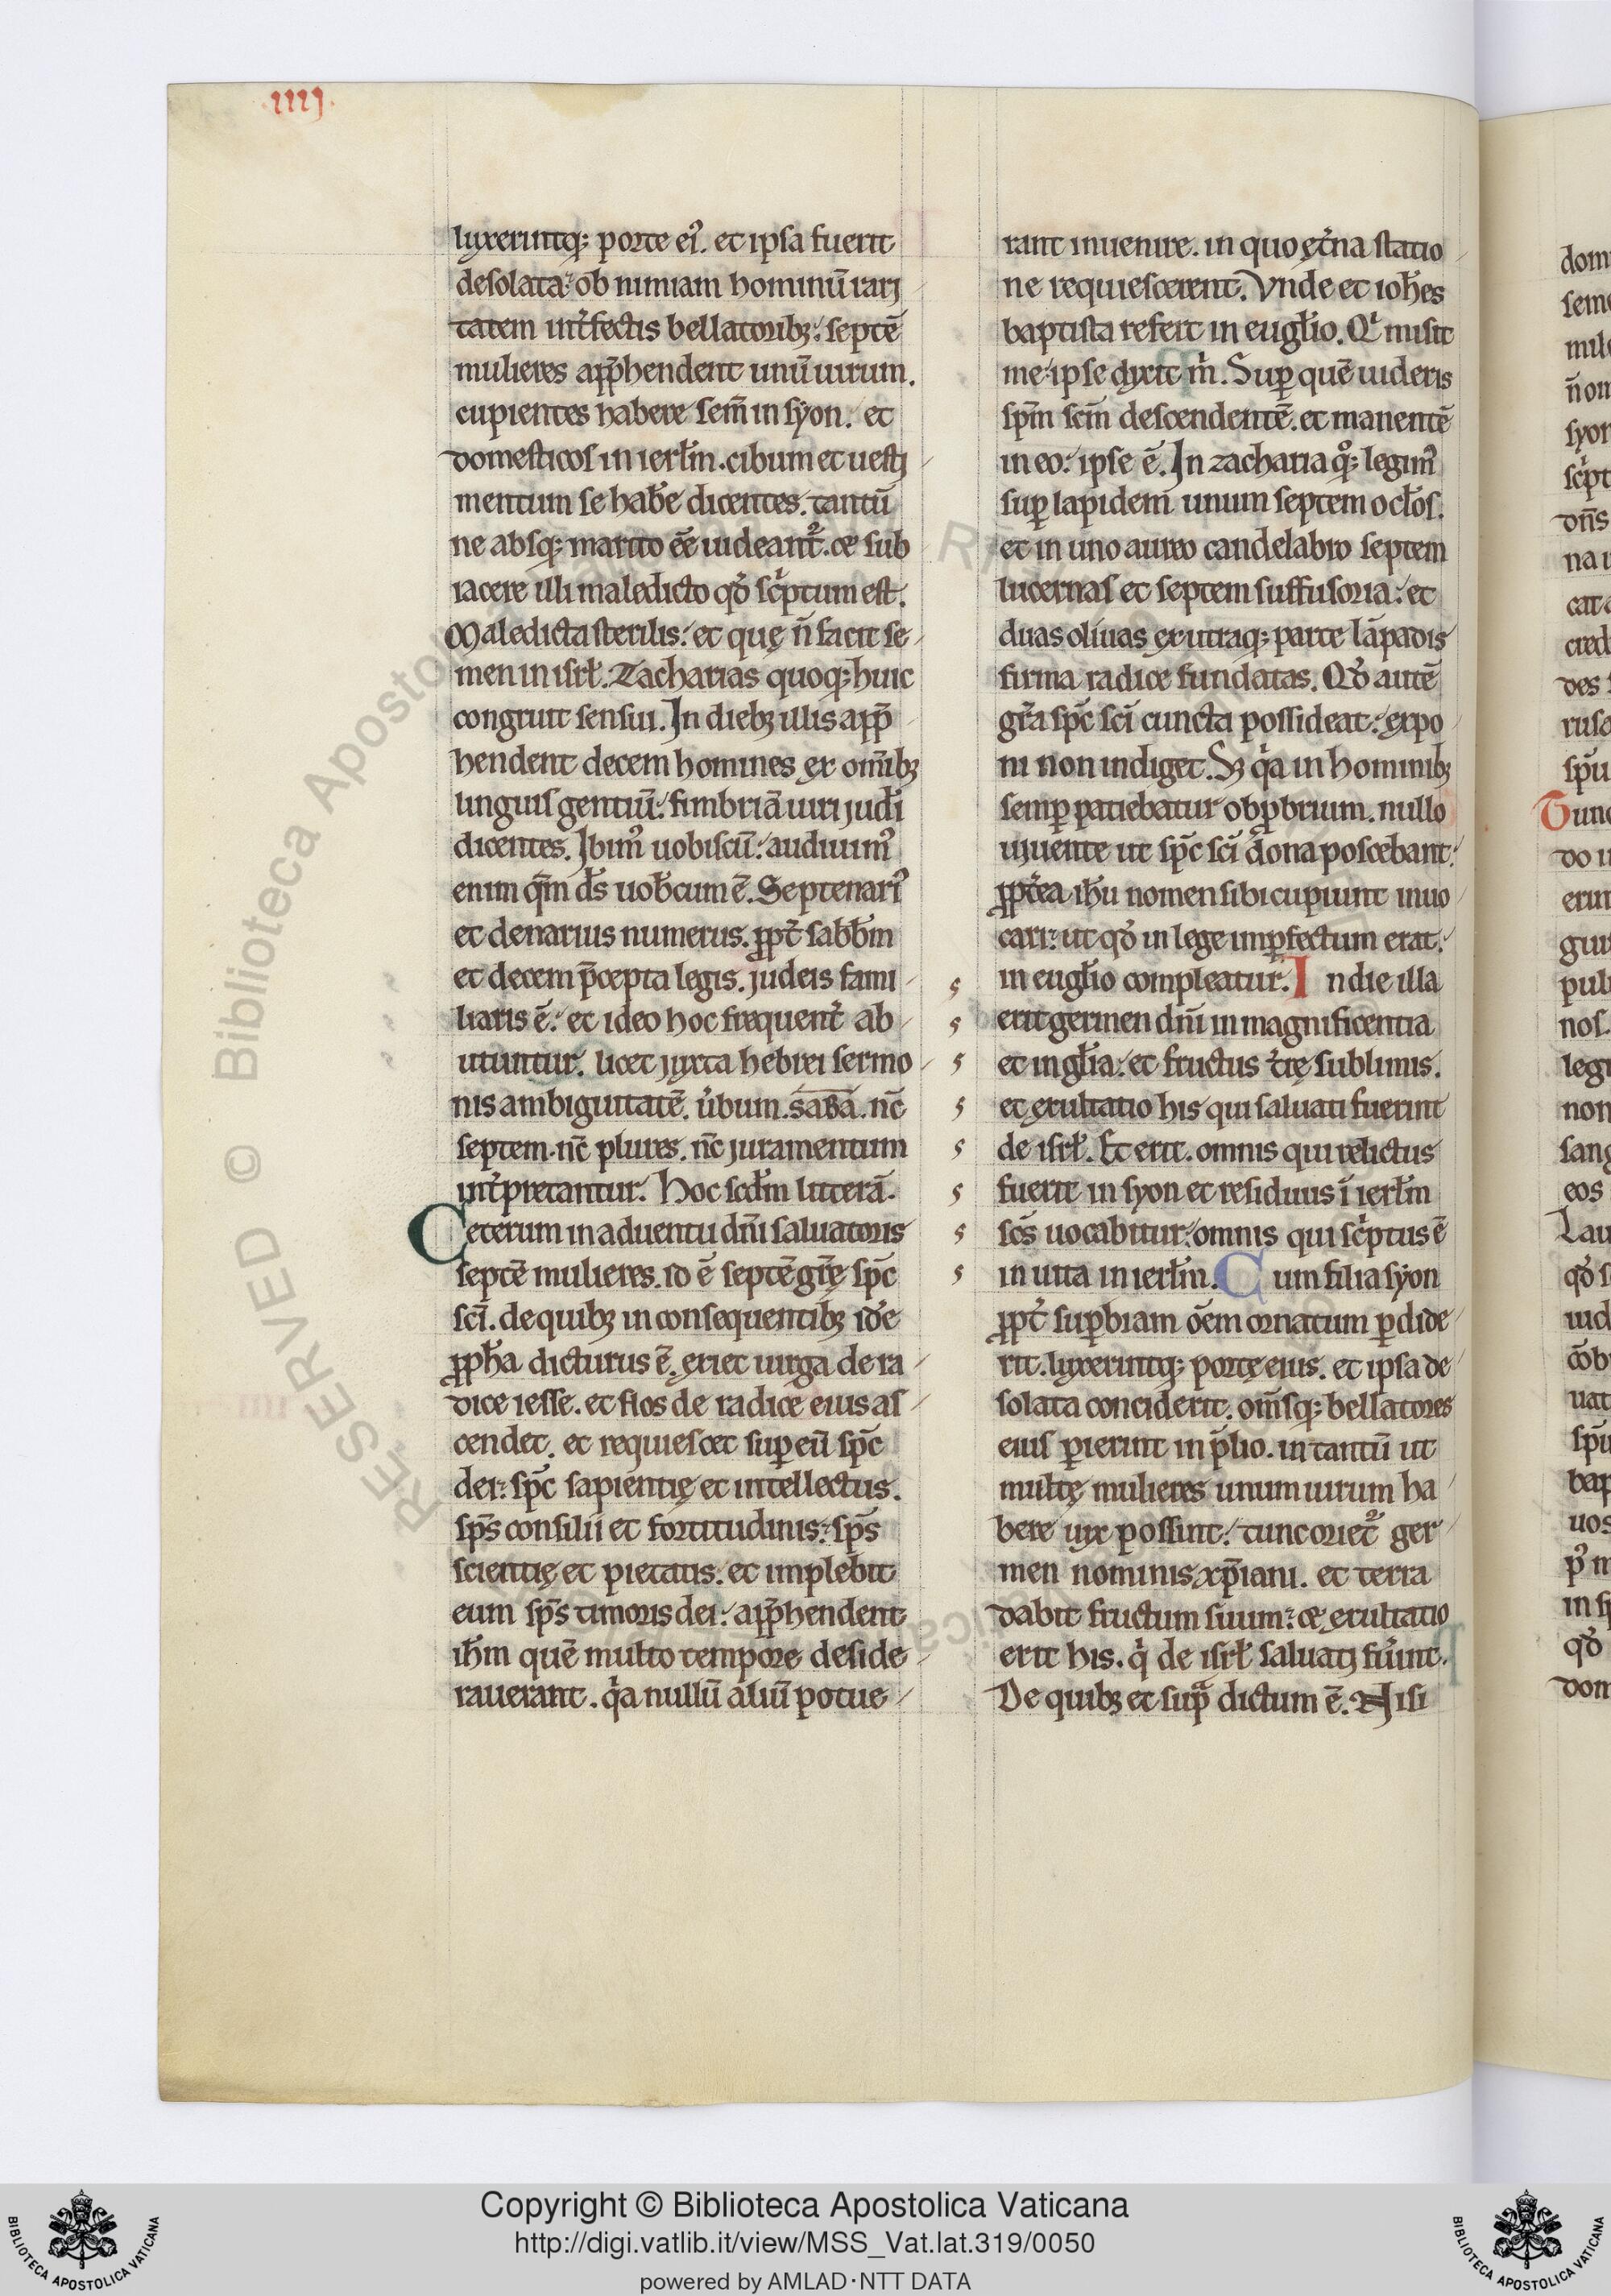 .IIIJ.
luxerintq; porte ei᾿. et ipsa fuerit
desolata: ob nimiam hominū rari
tatem int̄fectis bellatoribꝫ: septē
mulieres app̄hendent unū uirum.
cupientes habere sem̄ in syon. et
domesticos in ierłm. cibum et uesti
mentum se hab̄e dicentes. tantū
ne absq; marito ēē uideant᷑. & sub
iacere illi maledicto qđ sc͛ptum est.
Maledicta sterilis: et quę n̄ facit se
men in isrł. Zacharias quoq; huic
congruit sensui. In diebꝫ illis app̄
hendent decem homines ex om̄ibꝫ
linguis gentiū: fimbriā uiri judi
dicentes. Ibim᾿ uobiscū: audiuim᾿
enim qm̄ ds̄ uob̄cum ē. Septenari᾿
et denarius numerus. ꝓpt̄ sabb̄m
et decem p̄cepta legis. judeis fami
liaris ē: et ideo hoc frequent̄ ab
utuntur. licet juxta hebrei sermo
nis ambiguitatē. ūbum. saba. nc̄
septem. nc̄ plures. nc̄ juramentum
int̄pretantur. Hoc scđm litterā.
Ceterum in aduentu dn̄i saluatoris
septē mulieres. id ē septē gr̄ę spc̄
sc̄i. de quibꝫ in consequentibꝫ idē
ꝓph̄a dicturus ē. exiet uirga de ra
dice iesse. et flos de radice eius as
cendet. et requiescet suꝑ eū spc̄
dei: spc̄ sapientię et intellectus.
sps̄ consilii et fortitudinis: sps̄
scientię et pietatis. et implebit
eum sps̄ timoris dei: app̄hendent
ih̄m quē multo tempore deside
rauerant. q͛a nullū aliū potue
rant inuenire. in quo ęt̄na statio
ne requiescerent. Vnde et ioh̄es
baptista refert in eugłio. Qͥ misit
me: ipse dyxit m̄. Suꝑ quē uideris
spm̄ scm̄ descendentē. et manentē
in eo: ipse ē. In zacharia qͦ; legim᾿
suꝑ lapidem unum septem ocłos.
et in uno aureo candelabro septem
lucernas et septem suffusoria: et
duas oliuas ex utraq; parte lāpadis
firma radice fundatas. Qđ autē
gr̄a spc̄ sc̄i cuncta possideat: expo
ni non indiget. Sꝫ q͛a in hominibꝫ
semꝑ patiebatur obꝓbrium. nullo
uiuente ut spc̄ sc̄i dona poscebant:
ꝓpt̄ea ih̄u nomen sibi cupiunt inuo
cari: ut qđ in lege imꝑfectum erat.
in eugłio compleatur. In die illa
erit germen dn̄i in magnificentia
et in głia: et fructus t̄rę sublimis.
et exultatio his qui saluati fuerint
de isrł. Et erit. omnis qui relictus
fuerit in syon et residuus ī ierłm
scs̄ uocabitur: omnis qui sc͛ptus ē
in uita in ierłm. Cum filia syon
ꝓpt̄ suꝑbiam ōem ornatum ꝑdide
rit. luxerintq; portę eius. et ipsa de
solata conciderit. om̄sq; bellatores
eius ꝑierint in p̄lio. in tantū ut
multę mulieres unum uirum ha
bere uix possint: tunc oriet᷑ ger
men nominis xp̄iani. et terra
dabit fructum suum: & exultatio
erit his. q͛ de isrł saluati fūint.
De quibꝫ et supᷓ dictum ē. Nisi
Copyright © Biblioteca Apostolica Vaticana
http://digi.vatlib.it/view/MSS_Vat.lat.319/0050
powered by AMLAD·NTT DATA